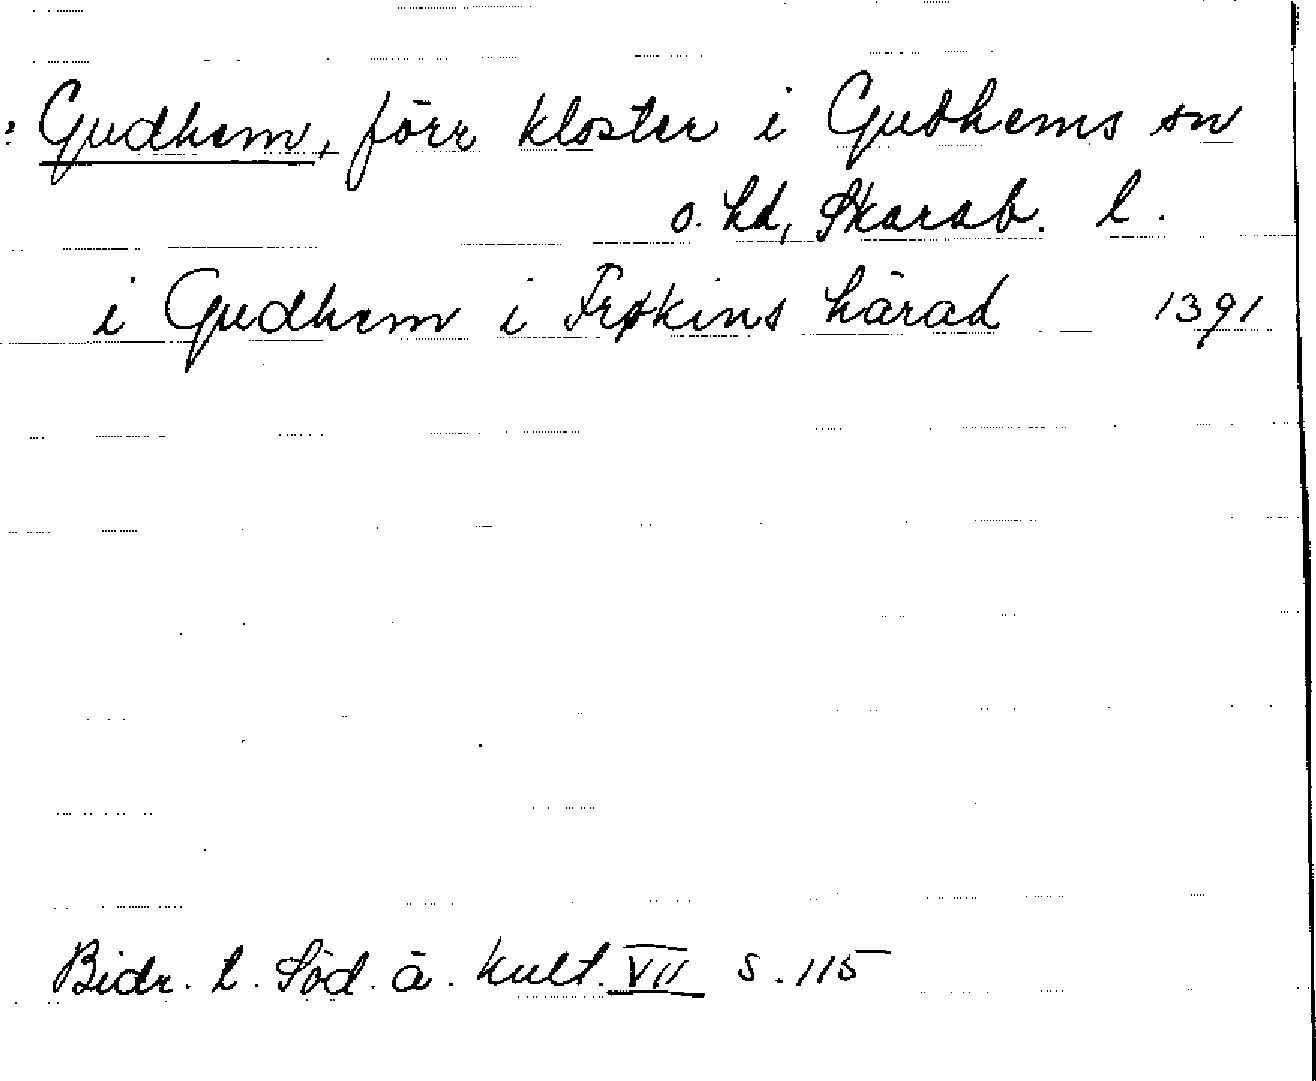 : Gudhem, förr kloster i Gudhems sn
o. hd, Skarab. l.
i Gudhem i Frøkins härad 1391
Bidr. t. Söd. ä. kult. VII s. 115